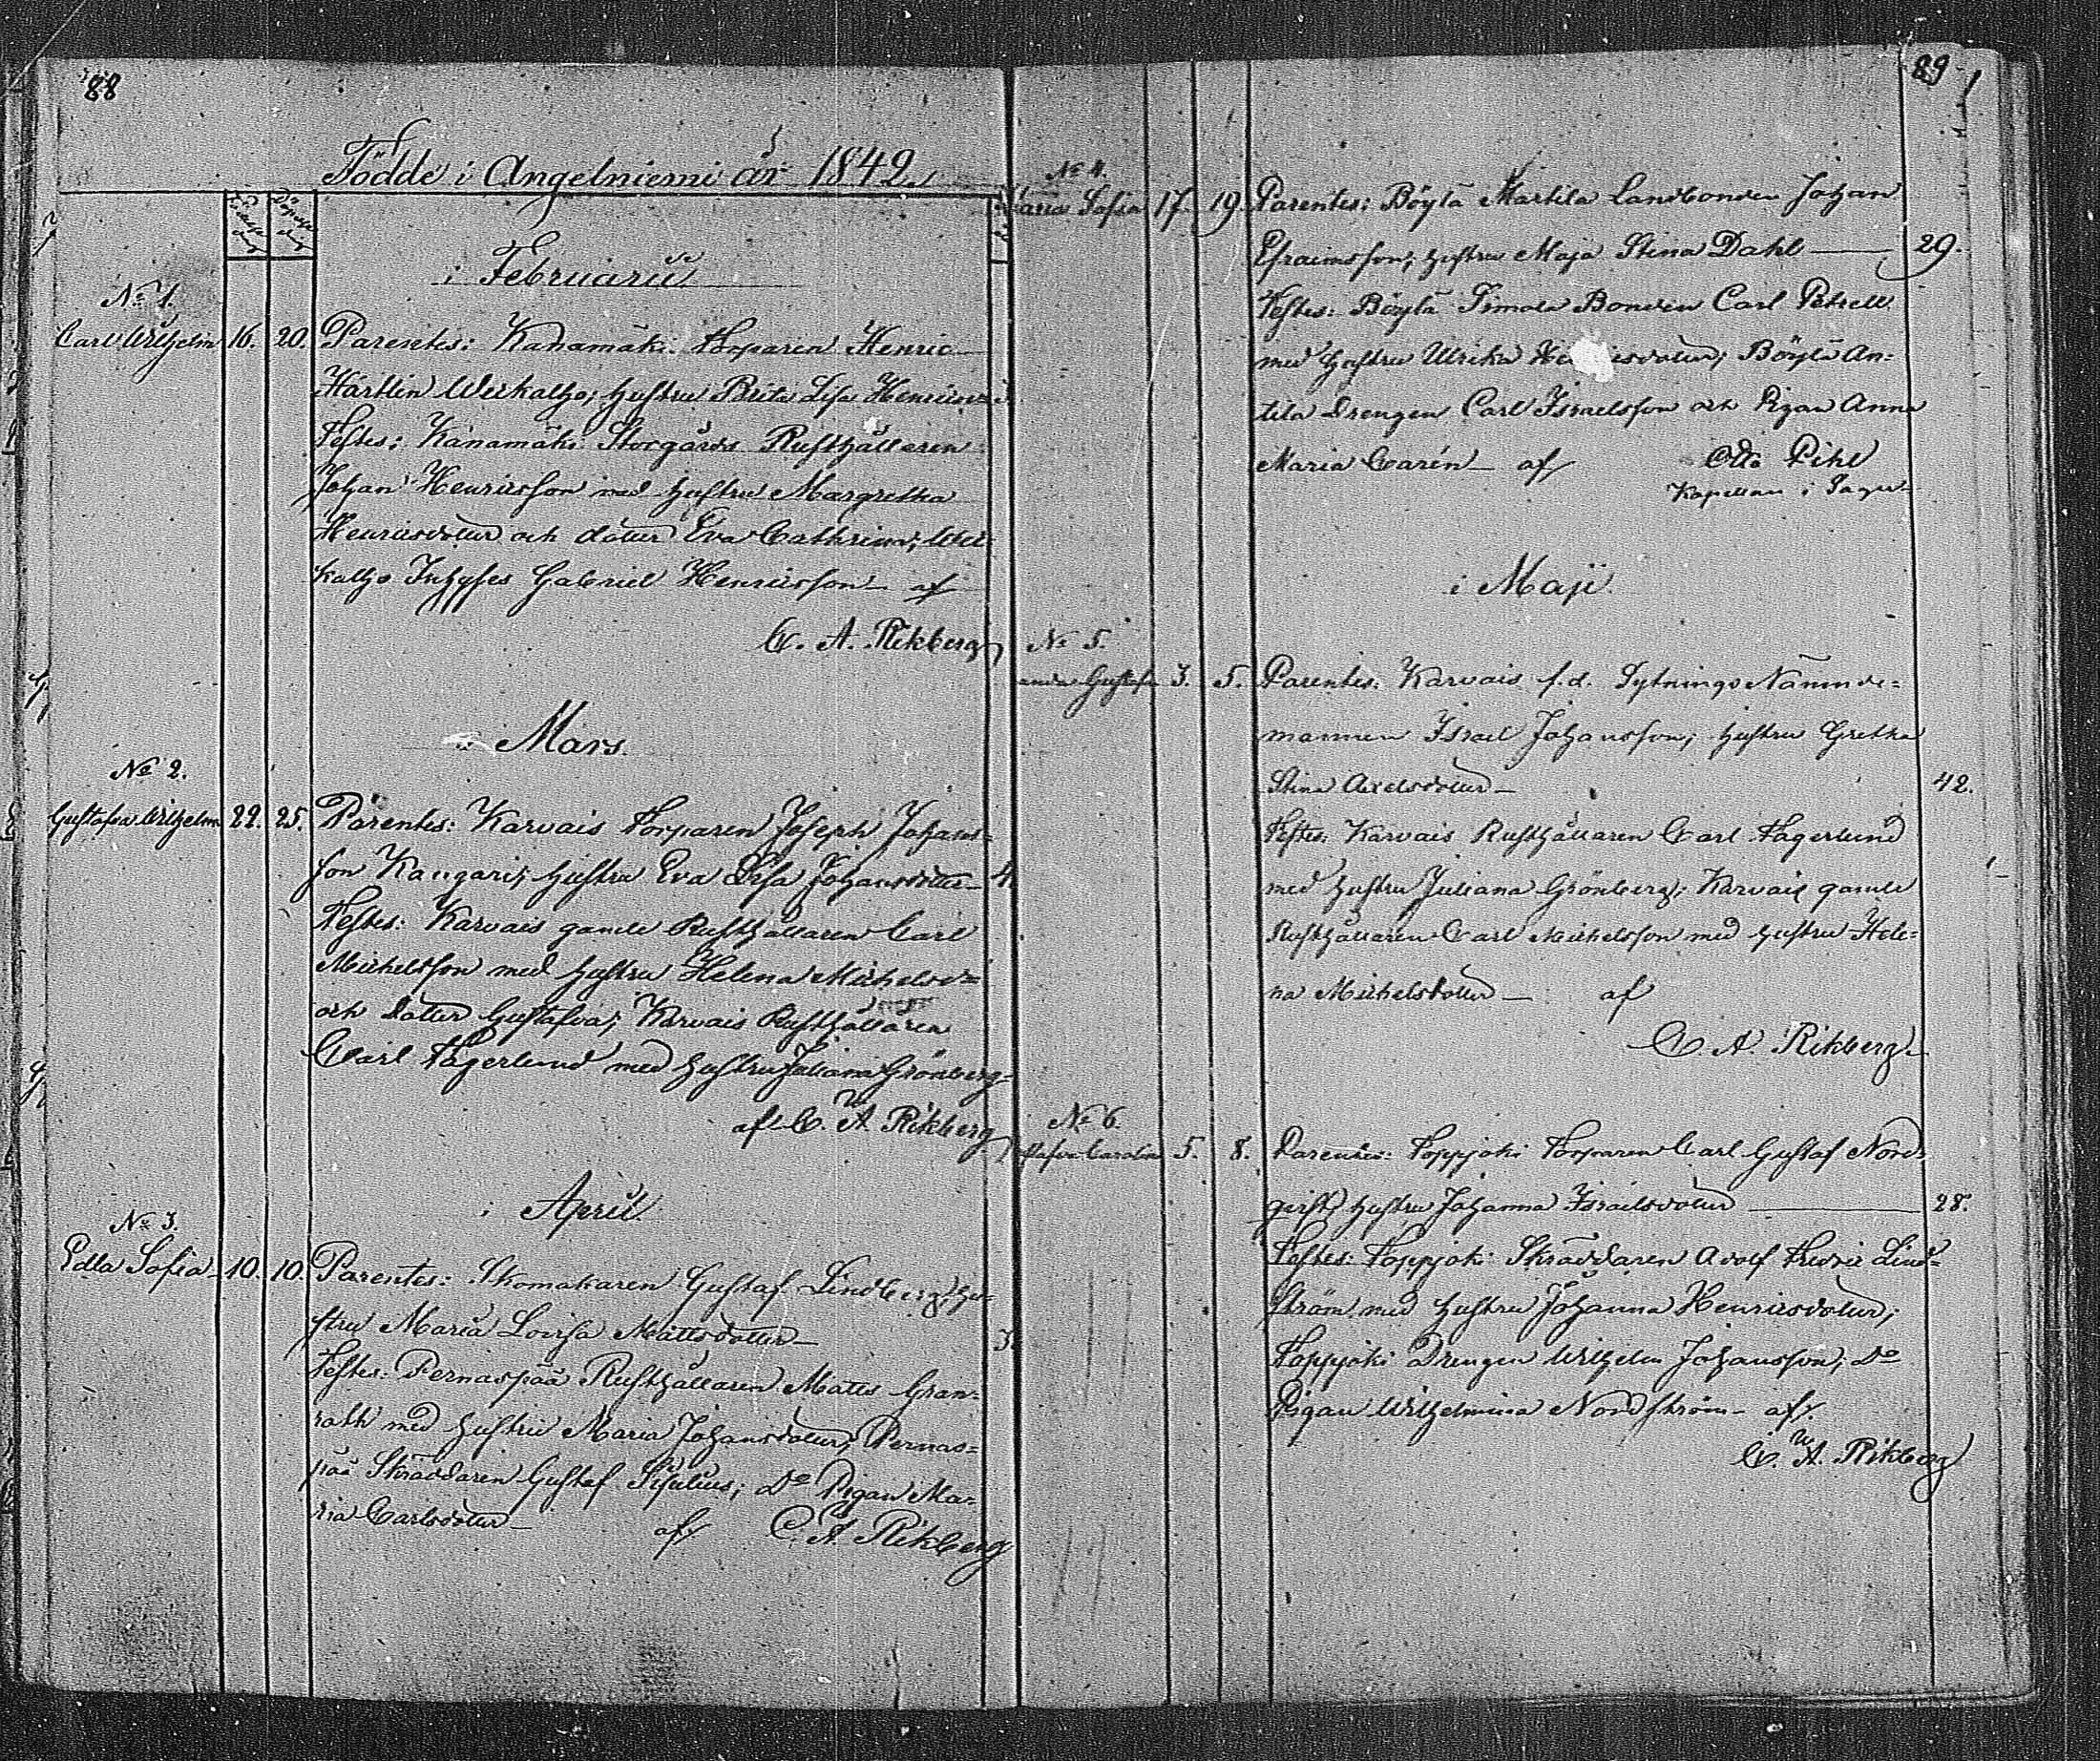 88
Födde i Angelniemi år 1842.
Födelse dag
Döpelse dag
i Februarii
No 1.
Carl Wilhelm 16. 20. Parentes: Kanamäki Torparen Henric
Härtlin Werkaljo; hustru Brita Lisa Henricsd=
Testes: Kanamäki Storgårds Rusthållaren
Johan Henricsson med hustru Margretha
Henricsdotter och dotter Eva Cathrina; Wer=
kaljo Inhyses Gabriel Henricsson – af
C. A. Rikberg
i Mars.
No 2.
Gustafva Wilhelm 22. 25. Parentes: Karvais Torparen Joseph Johans=
son Kangari; hustru Eva Lisa Johansdotter – 4
Testes: Karvais gamle Rusthållaren Carl
Michelsson med hustru Helena Michelsd=
och dotter Gustafva; Karvais Rusthållaren
Carl Fagerlund med hustru Juliana Grönberg=
af C. A. Rikberg
i April.
No 3.
Edla Sofia 10. 10. Parentes: Skomakaren Gustaf Lindberg, hu=
stru Maria Lovisa Mattsdotter – 3
Testes: Pernaspää Rusthållaren Matts Gran=
rath med hustru Maria Johansdotter; Pernas=
pää Skräddaren Gustaf; Do Pigan Ma=
ria Carlsdotter – af C. A. Rikberg
89
No 4.
Maria Sofia 17. 19. Parentes: Böylä Martila Landbonden Johan
Efraimsson; hustru Maja Stina Dahl — 29.
Testes: Böylä Simola Bonden Carl Petrell
med hustru Ulrika; Böylä An=
tila Drengen Carl Israelsson och Pigan Anna
Maria Carén – af Otto Pihl
Kapellan i
i Maji.
No 5.
anda Gustafva 3. 5. Parentes: Karvais f.d. Sytnings Nämnde=
mannen Israel Johansson; hustru Gretha
Stina Axelsdotter – 42.
Testes: Karvais Rusthållaren Carl Fagerlund
med hustru Juliana Grönberg; Karvais gamle
Rusthållaren Carl Michelsson med hustru Hele=
na Michelsdotter – af
C. A. Rikberg
No 6.
stafva Carolin 5. 8. Parentes: Toppjoki Torparen Carl Gustaf Nord=
qvist, hustru Johanna Israelsdotter — 28.
Testes: Toppjoki Skräddaren Adolf Fredric Lind=
ström med hustru Johanna Henricsdotter;
Toppjoki Drengen Wilhelm Johansson; Do
Pigan Wilhelmina Nordström – af
C. A. Rikberg